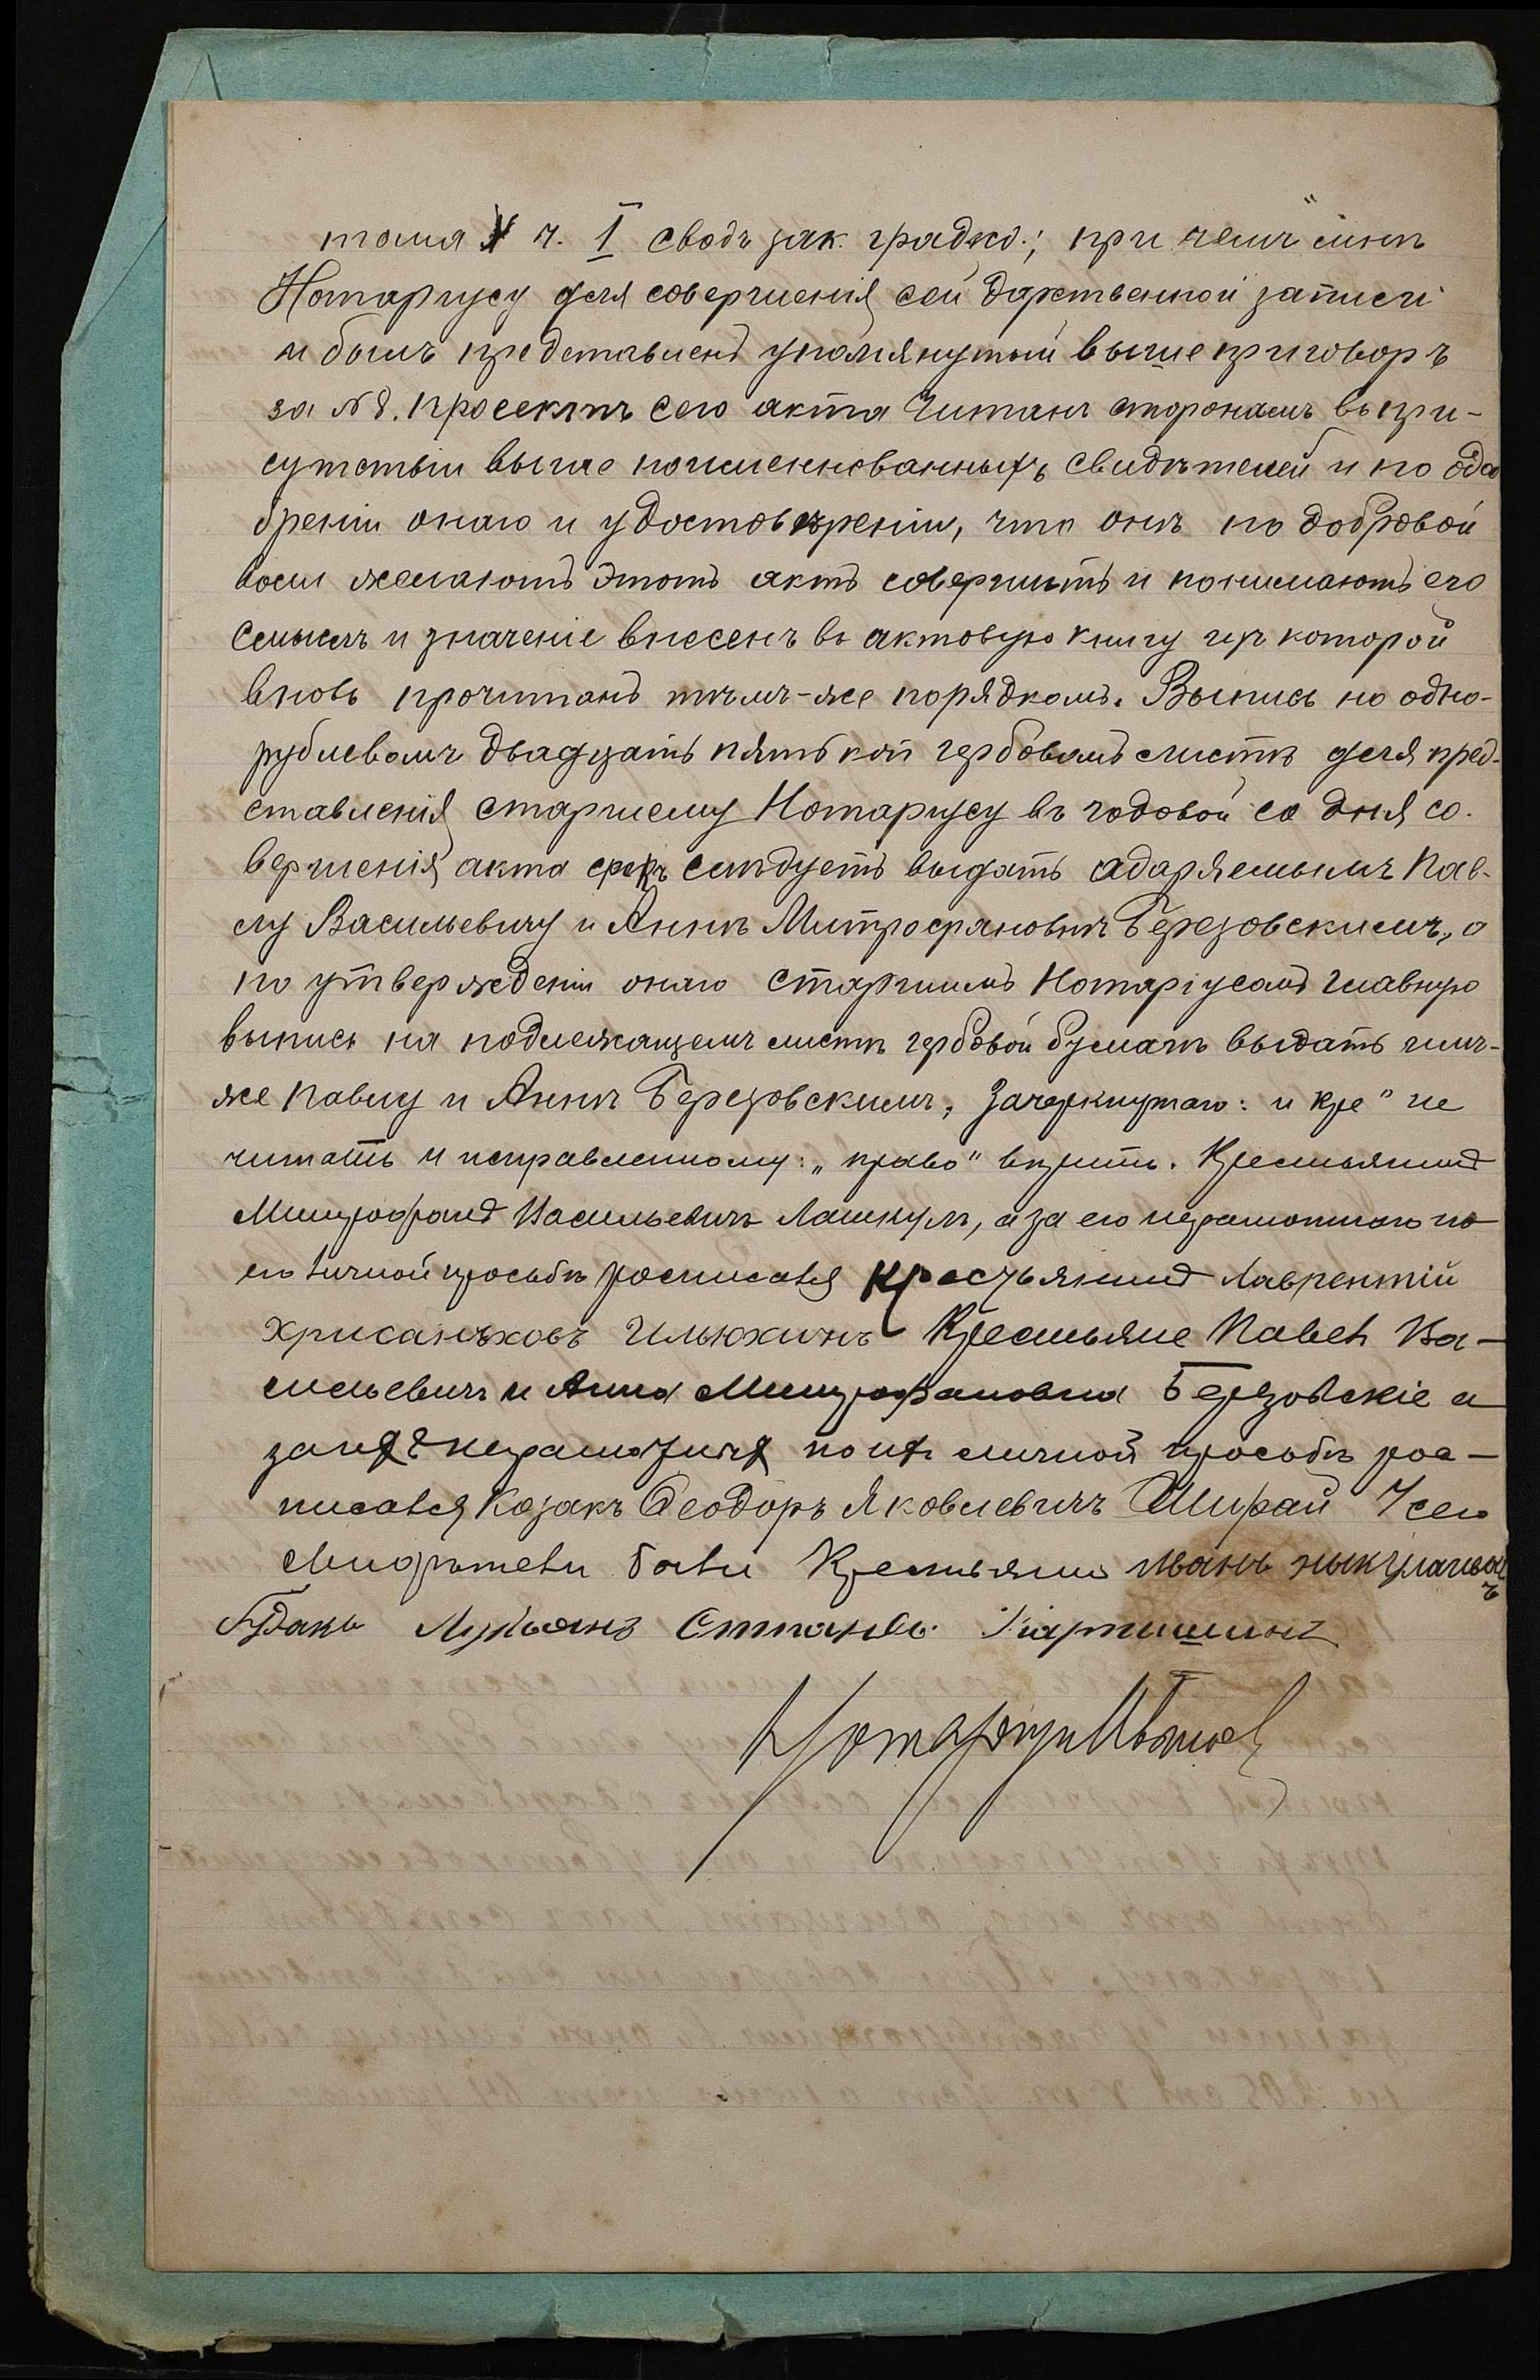 тома X ч. I сводъ зак. гражд.; при чемъ мнѣ
Нотаріусу для совершенія сей дарственной записи
и былъ представленъ упомянутый выше приговоръ
за № 8. Проектъ сего акта читанъ сторонамъ въ при-
сутствіи выше поименнованныхъ свидѣтелей и по одо
бреніи онаго и удостовѣреніи, что онѣ по доброй
воли желаютъ этотъ актъ совершить и понимаютъ его
смыслъ и значеніе внесенъ въ актовую книгу изъ которой
вновь прочитанъ тѣмъ-же порядкомъ. Выпись на одно-
рублевомъ двадцать пять коп гербовомъ листѣ для пред-
ставленія старшему Нотаріусу въ годовой со дня со-
вершенія акта срокъ слѣдуетъ выдать одаряемымъ Пав-
лу Васильевичу и Аннѣ Митрофановнѣ Березовскимъ, а
по утвержденіи онаго старшимъ Нотаріусомъ главную
выпись на подлежащемъ листѣ гербовой бумаги выдать имъ-
же Павлу и Аннѣ Березовскимъ, Зачеркнутаго: и кре" не
читать и исправленному: „право" вѣрить. Крестьянинъ
Митрофанъ Васильевичъ Лашкулъ, а за его неграмотнаго по
его личной просьбѣ росписался Крестьянинъ Лаврентій
Хрисанѣховъ Илюхинъ Крестьяне Павелъ Ва-
сильевичъ и Анна Митрофановна Березовскіе а
за ихъ неграмотныхъ по ихъ личной просьбѣ рос-
писался Козакъ Ѳеодоръ Яковлевичъ Ширай У сего
свидѣтели были Крестьяне Иванъ
Лукьянъ
Нотаріусъ